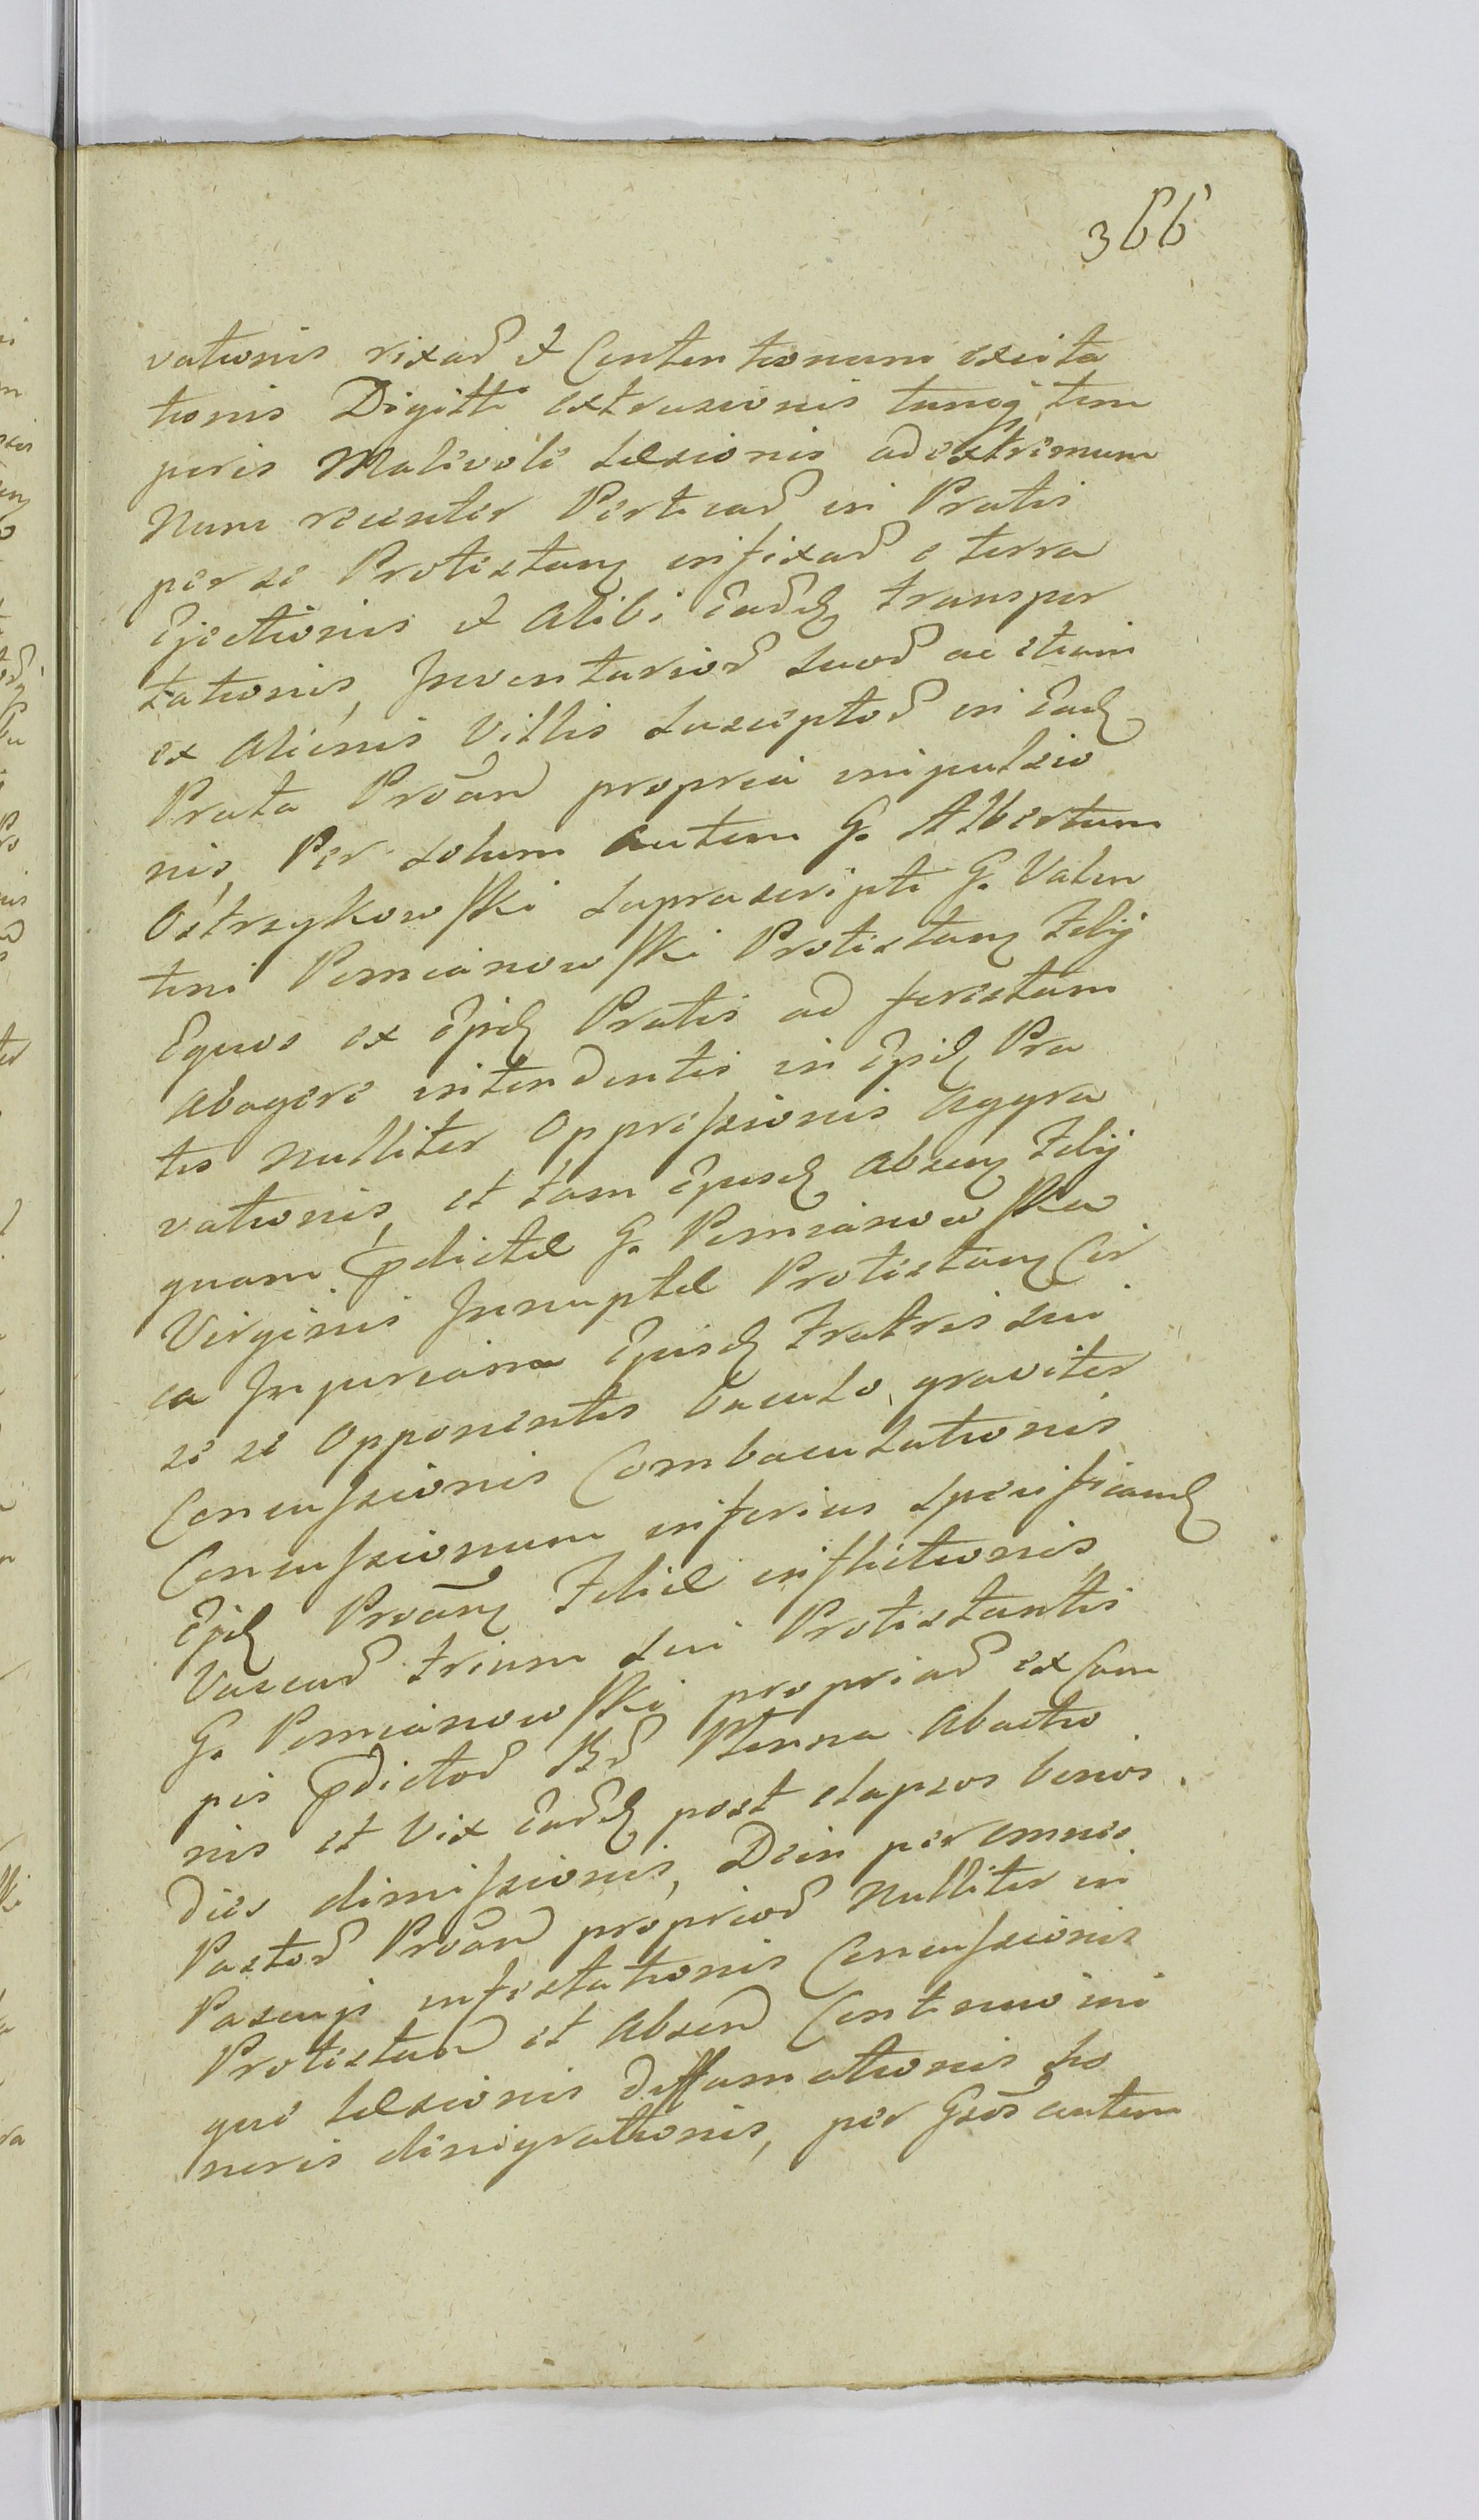 366
vationis rixaru et Contentionum excita
tionis Digitti extrusionis tunq tem
poris Malevole Læsionis ad extremum
Nunc recenter Perticaru in Pratis
per se Protestan infixaru e terra
Ejectionis et Alibi earud transpor
tationis, Inventarioru suoru ac etiam
ex Alienis Villis susceptoru in Ead
Prata Proan propria impulsio
nis, Per solum autem G. Albertum
Ostrzykowski suprascripti G. Valen
tini Pomianowski Protestan Filij
Equos ex Ejsd Pratis ad forestam
Abagere intendentis in Ejsd Pra
tis Nulliter Oppressionis Aggra
vationis, et tam Ejusd Absen Filij
quam pdictæ G. Pomianowska
Virginis Innuptæ Protestan Cir
ca Injuriam Ejusd Fratris sui
se se Opponentis baculo graviter
Concussionis Combaculationis
Concussionum inferius specificand
Ejsd Proan Filiæ inflictionis,
Vaccaru trium sui Protestantis
G. Pomianowski propriaru ex Cam
pis pdictoru Bru Ptenna Abactio
nis et Vix earud post elapsos binos
dies dimissionis, Dein per omnes
Pastoru Proan proprioru Nulliter in
Pascuis infestationis Concussionis
Protestan et Absen Continuo ini
que Læsionis diffamationis ho
noris dinigrationis, per Gsos autem